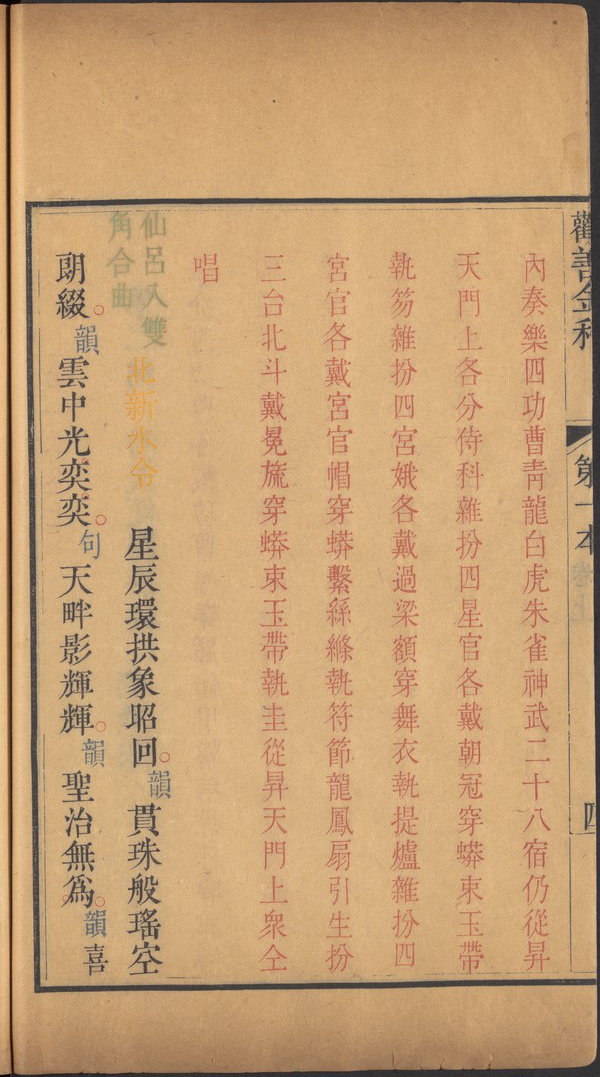 勸善金科
第一本
卷上
四
內奏樂四功曹青龍白虎朱雀神武二十八宿仍從昇
天門上各分侍科雜扮四星官各戴朝冠穿蟒束玉帶
執笏雜扮四宮娥各戴過梁額穿舞衣執提爐雜扮四
宮官各戴宮官帽穿蟒繫絲縧執符節龍鳳扇引生扮
三台北斗戴冕旒穿蟒束玉帶執圭從昇天門上衆仝
唱
仙呂入雙
角合曲
北新水令
星辰環拱象昭回韻貫珠般瑤空
朗綴韻雲中光奕奕句天畔影輝輝韻聖治無爲韻喜